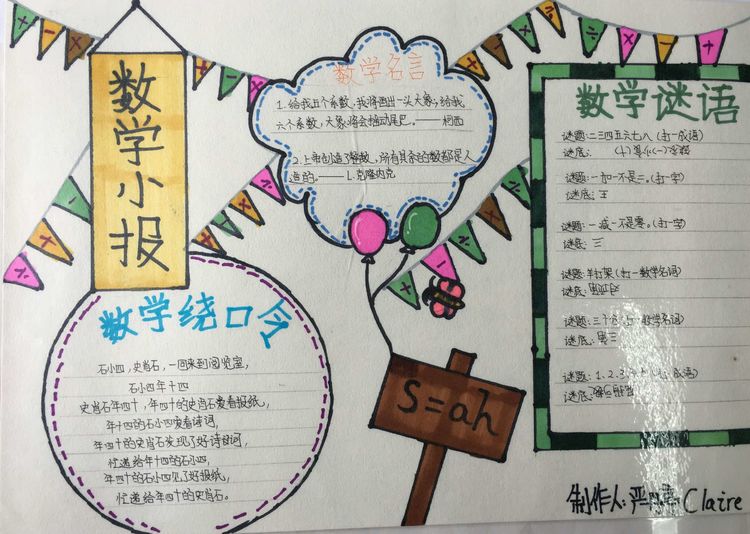 数学小报
数学绕口令
石小四，史肖石，一同来到阅览室，
石小四年十四
史肖石年四十，年十四的石小四爱看诗词，
年四十的史肖石爱看报纸，
年四十的史肖石发现了好诗词，
忙递给年十四的石小四，
年十四的石小四见了好报纸，
忙递给年四十的史肖石。
数学名言
1.给我五个系数，我将画出一头大象；给我
六个系数，大象将会摇动尾巴。——柯西
2.上帝创造了整数，所有其余的数都是人
造的。——L.克隆内克
S=ah
数学谜语
谜题：二三四五六七八（打一成语）
谜底：
谜题：一加一不是二。（打一字）
谜底：王
谜题：一减一不是零。（打一字）
谜底：三
谜题：羊打架（打一数学名词）
谜底：
谜题：
谜底：
谜题：1.2.3.
谜底：
制作人：严 Claire